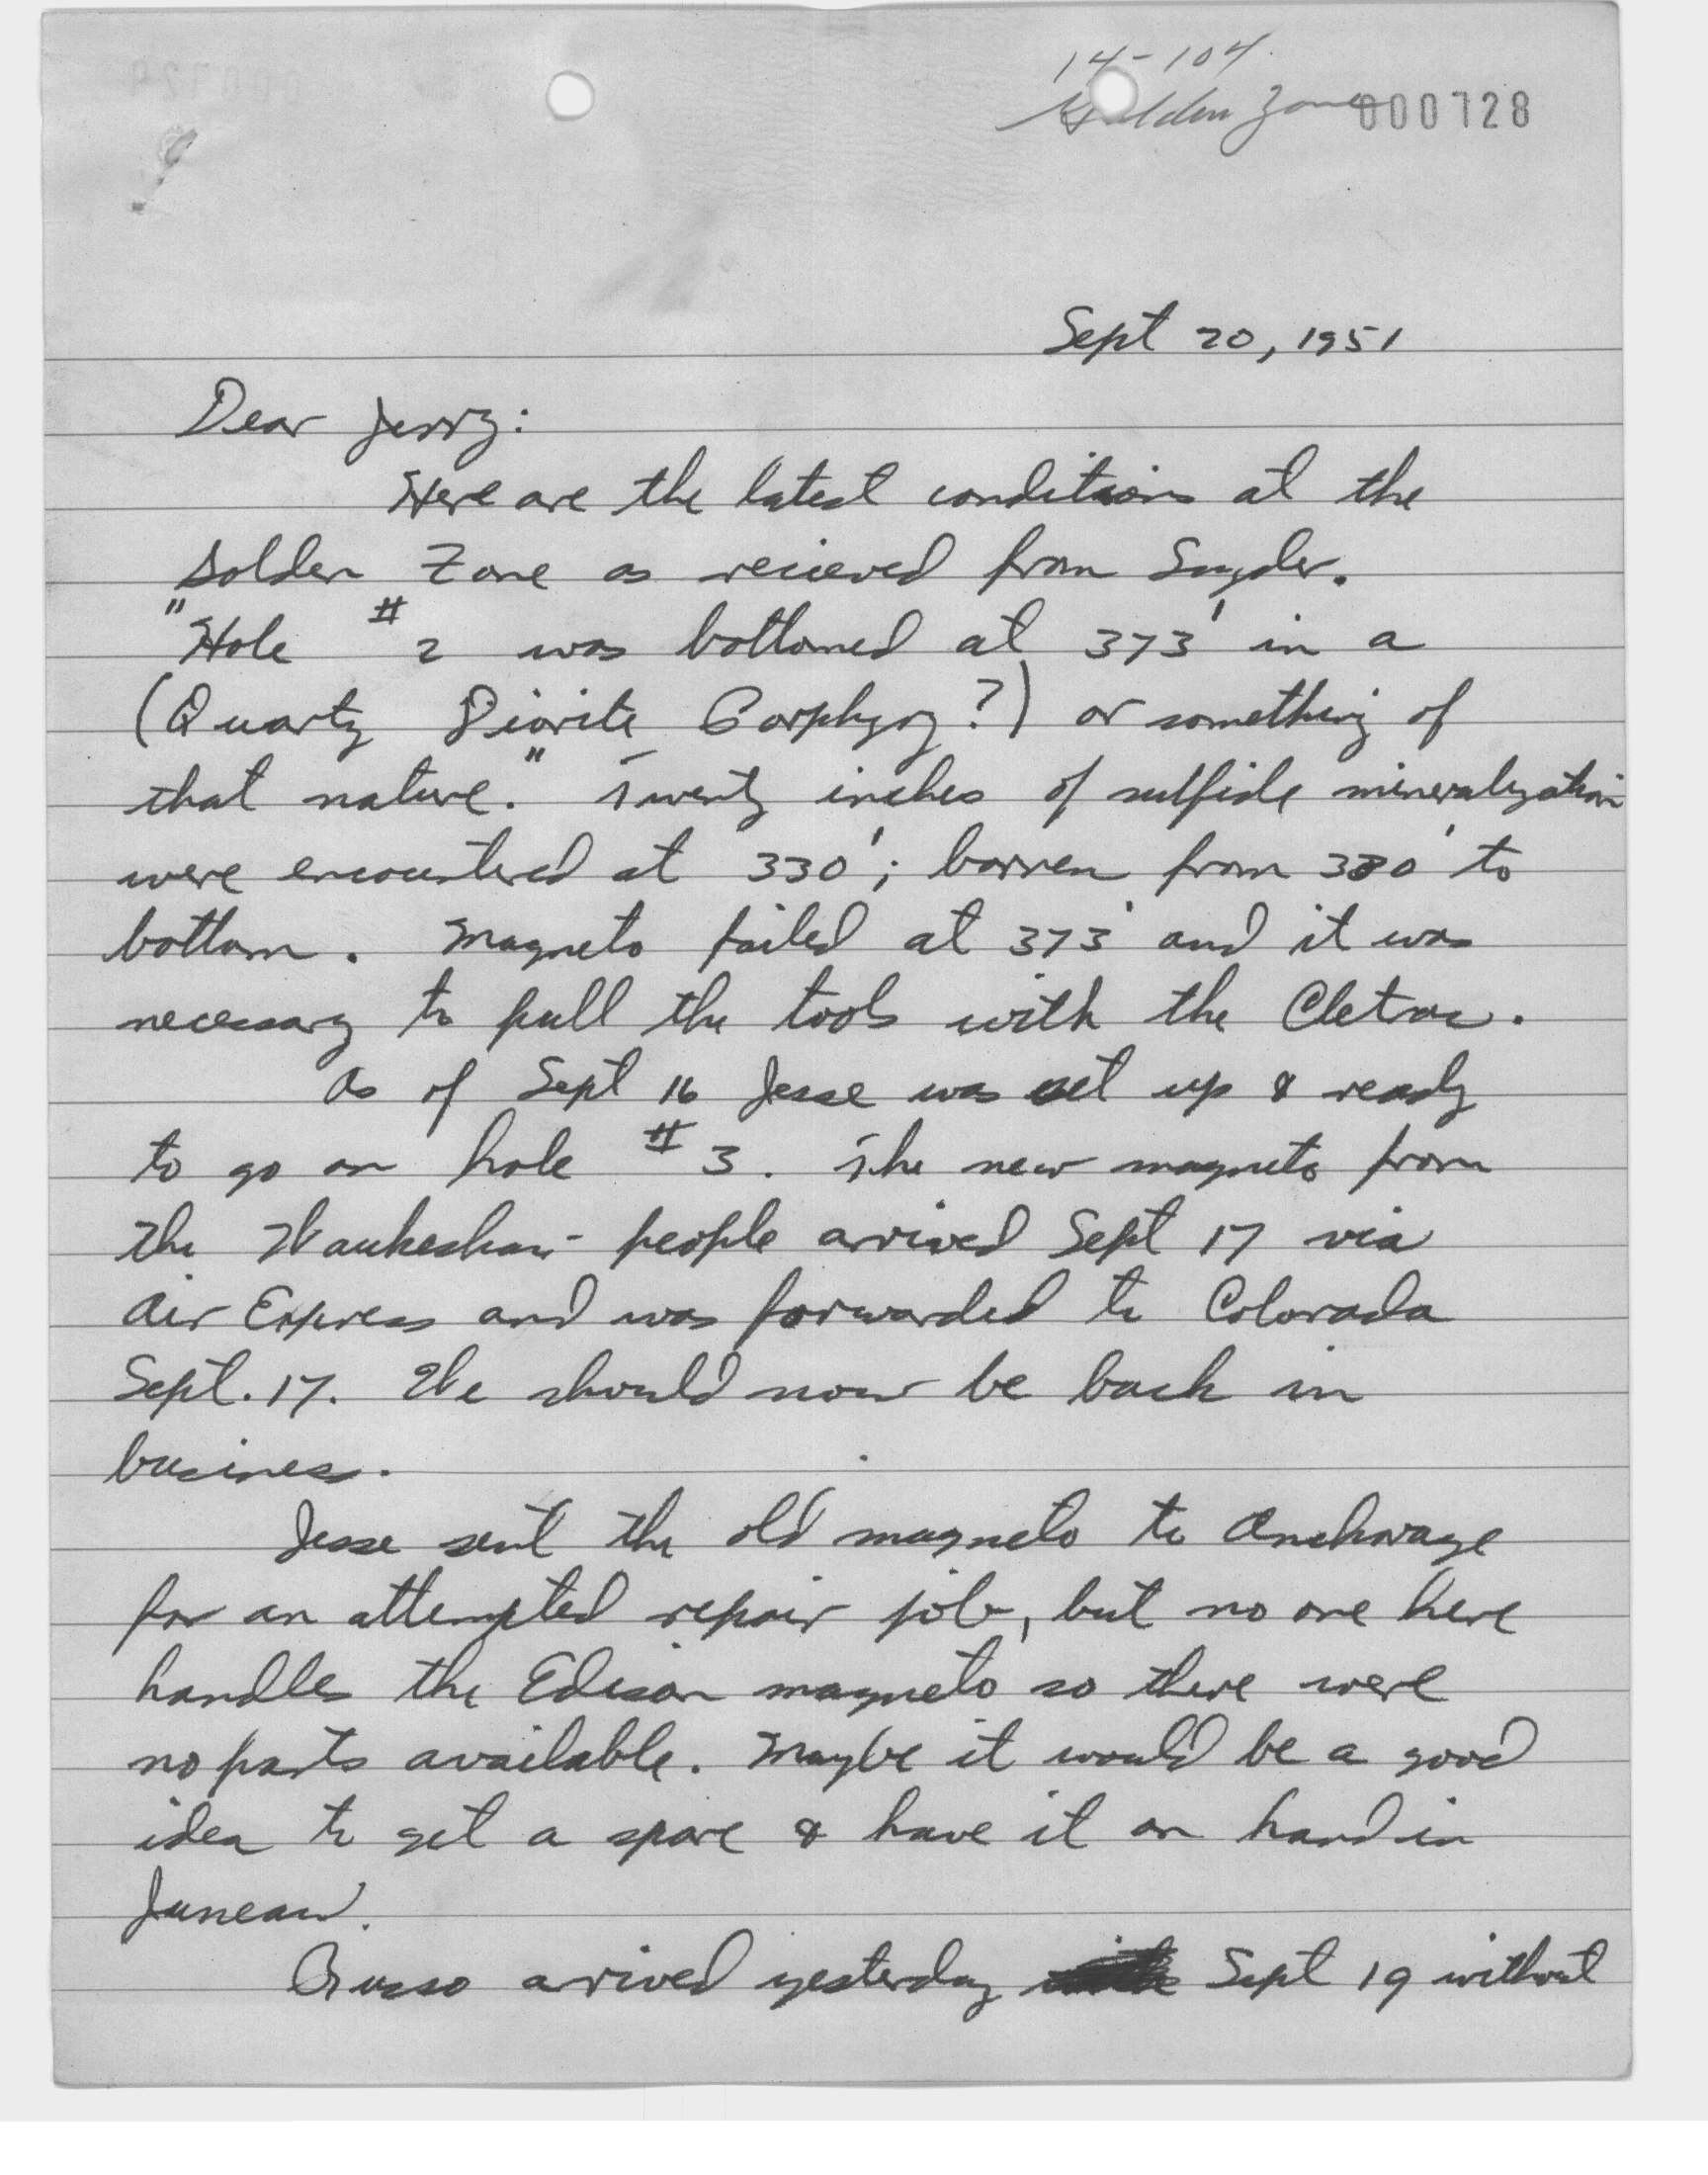 14-104
Golden Zone 000728
Sept 20, 1951
Dear Jerry:
Here are the latest conditions at the
Golden Zone as recieved from Snyder.
"Hole #2 was bottomed at 373' in a
(Quartz Diorite Porphyry?) or something of
that nature." Twenty inches of sulfide mineralization
were encountered at 330'; barren from 330' to
bottom. Magneto failed at 373' and it was
necessary to pull the tools with the Cletrac.
As of Sept 16 Jesse was set up & ready
to go on hole #3. The new magneto from
the Waukeshaw people arrived Sept 17 via
Air Express and was forwarded to Colorada
Sept. 17. We should now be back in
business.
Jesse sent the old magneto to Anchorage
for an attempted repair job, but no one here
handles the Edison magneto so there were
no parts available. Maybe it would be a good
idea to get a spare & have it on hand in
Juneau.
Russo arrived yesterday Sept 19 without